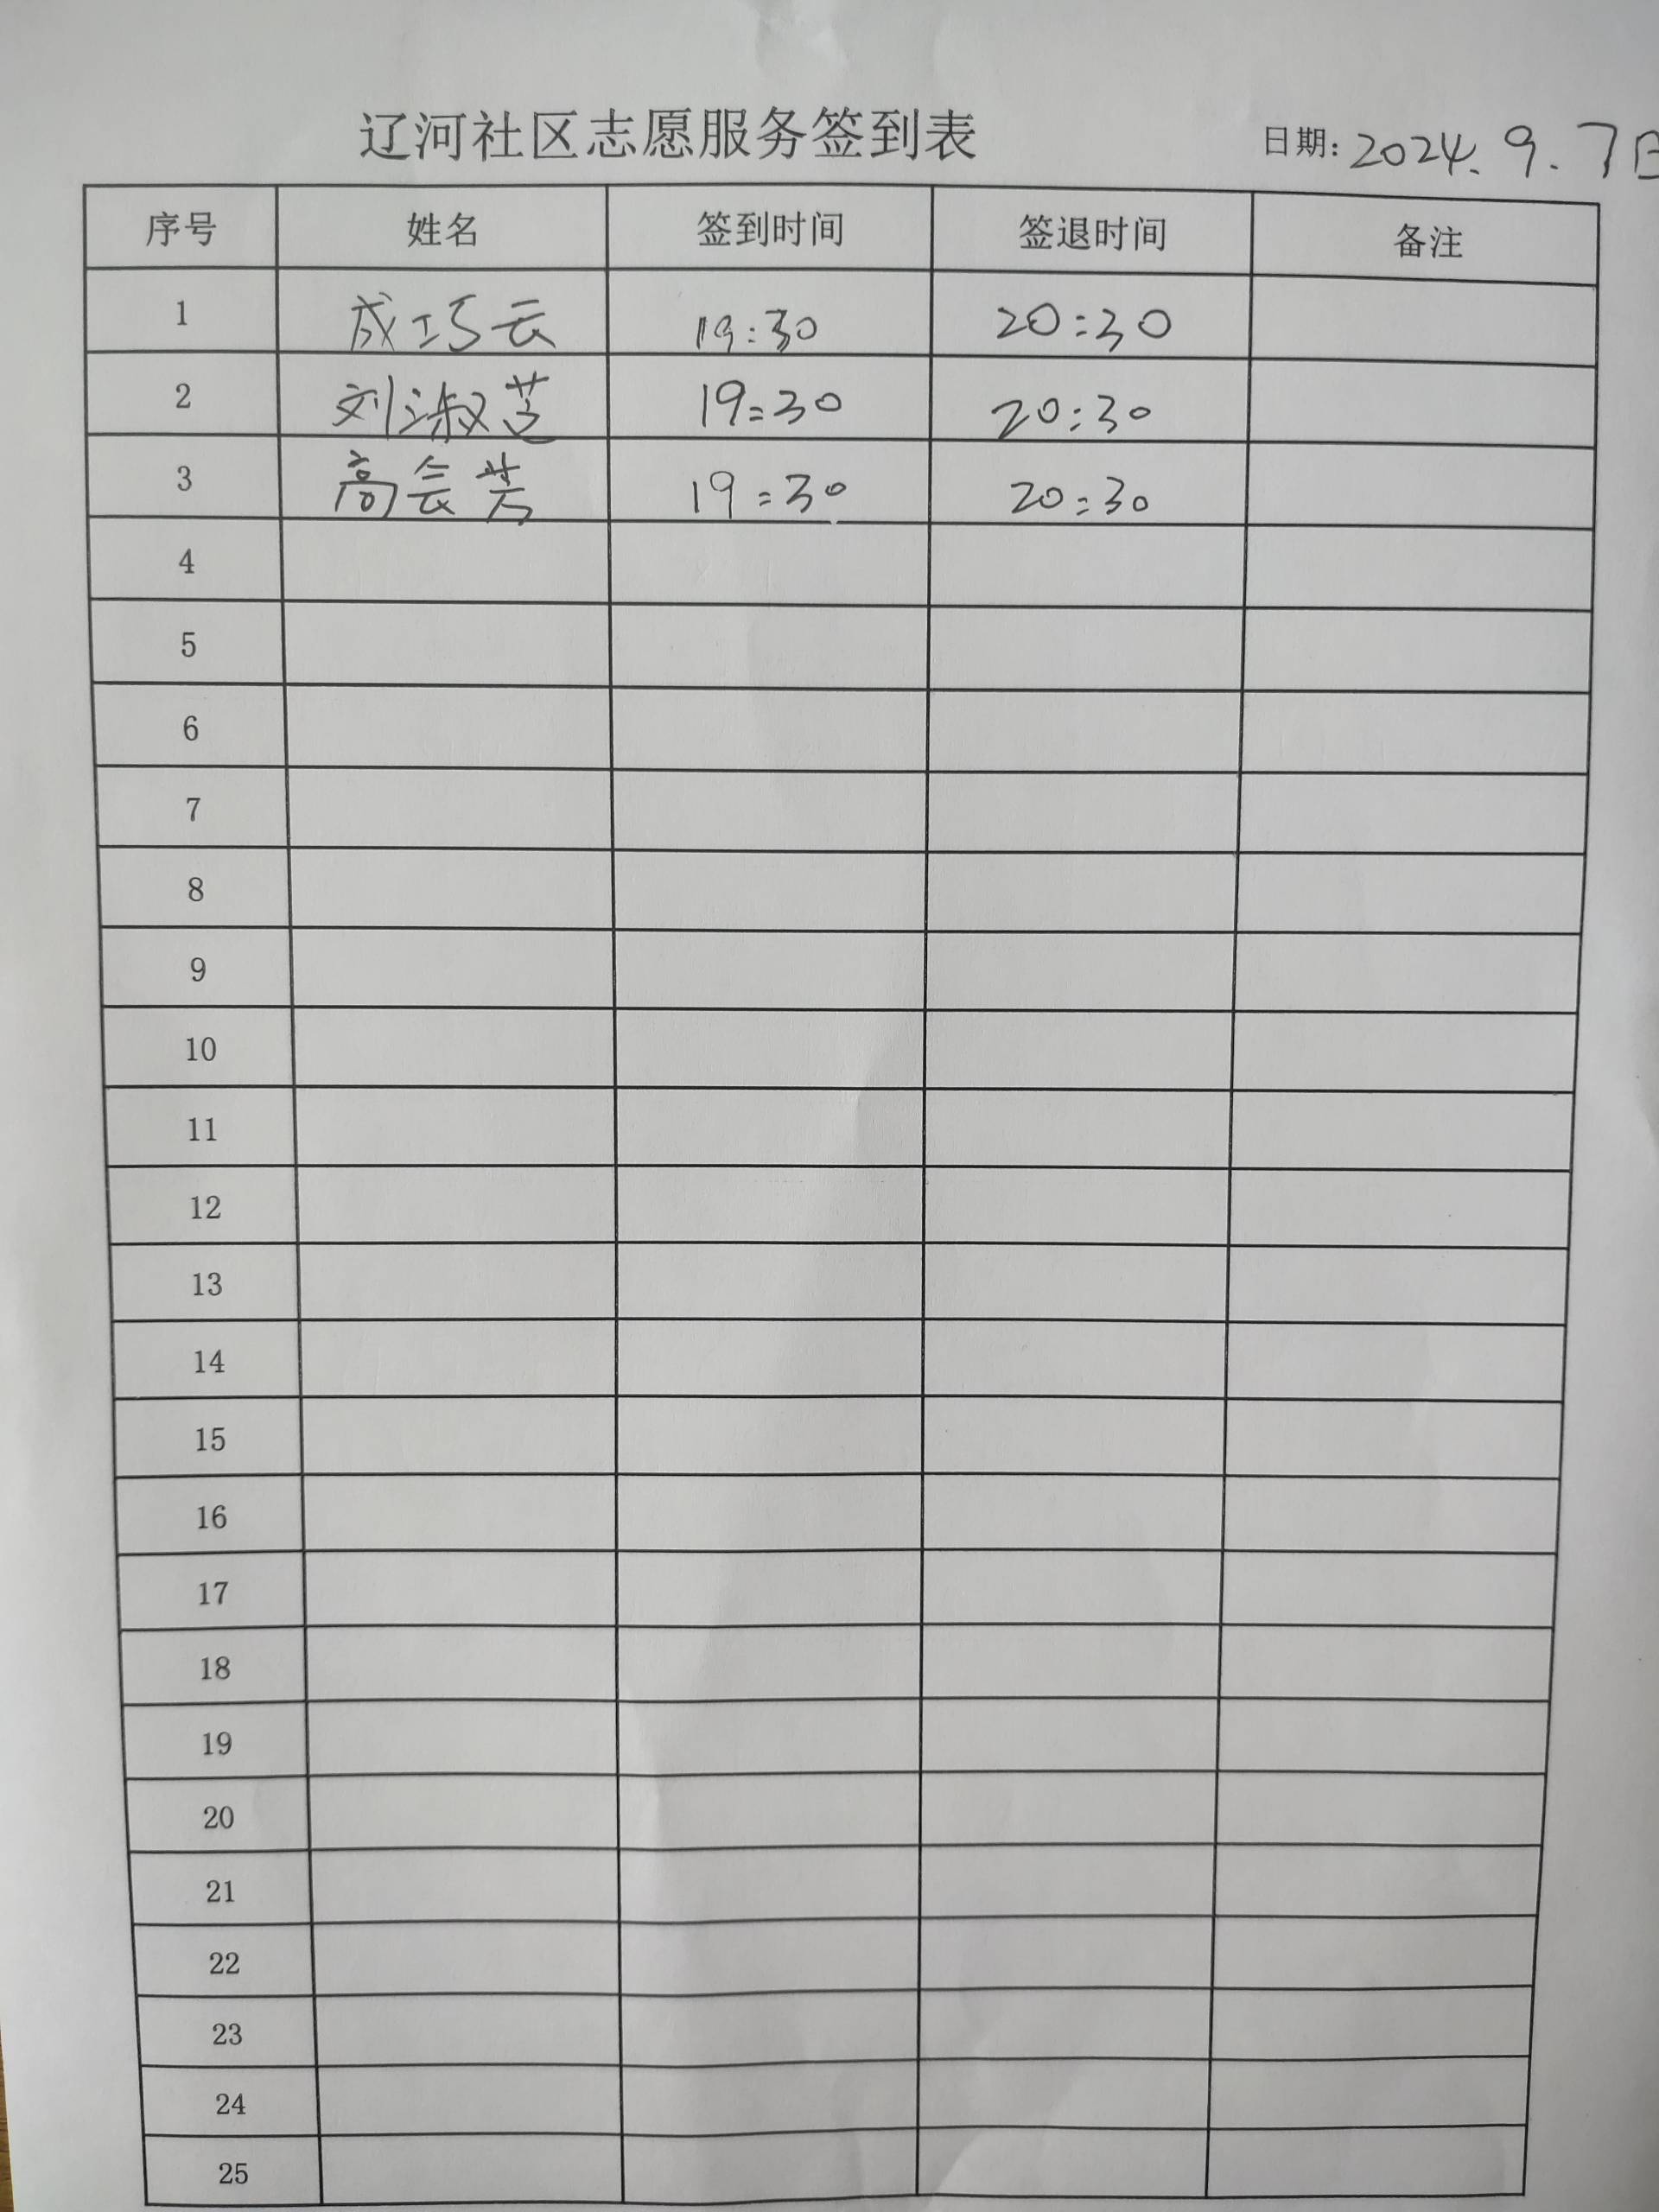 辽河社区志愿服务签到表 日期: 2024. 9. 7日
序号 姓名 签到时间 签退时间 备注
1 成巧云 19:30 20:30
2 刘淑芝 19:30 20:30
3 高会芳 19:30 20:30
4
5
6
7
8
9
10
11
12
13
14
15
16
17
18
19
20
21
22
23
24
25